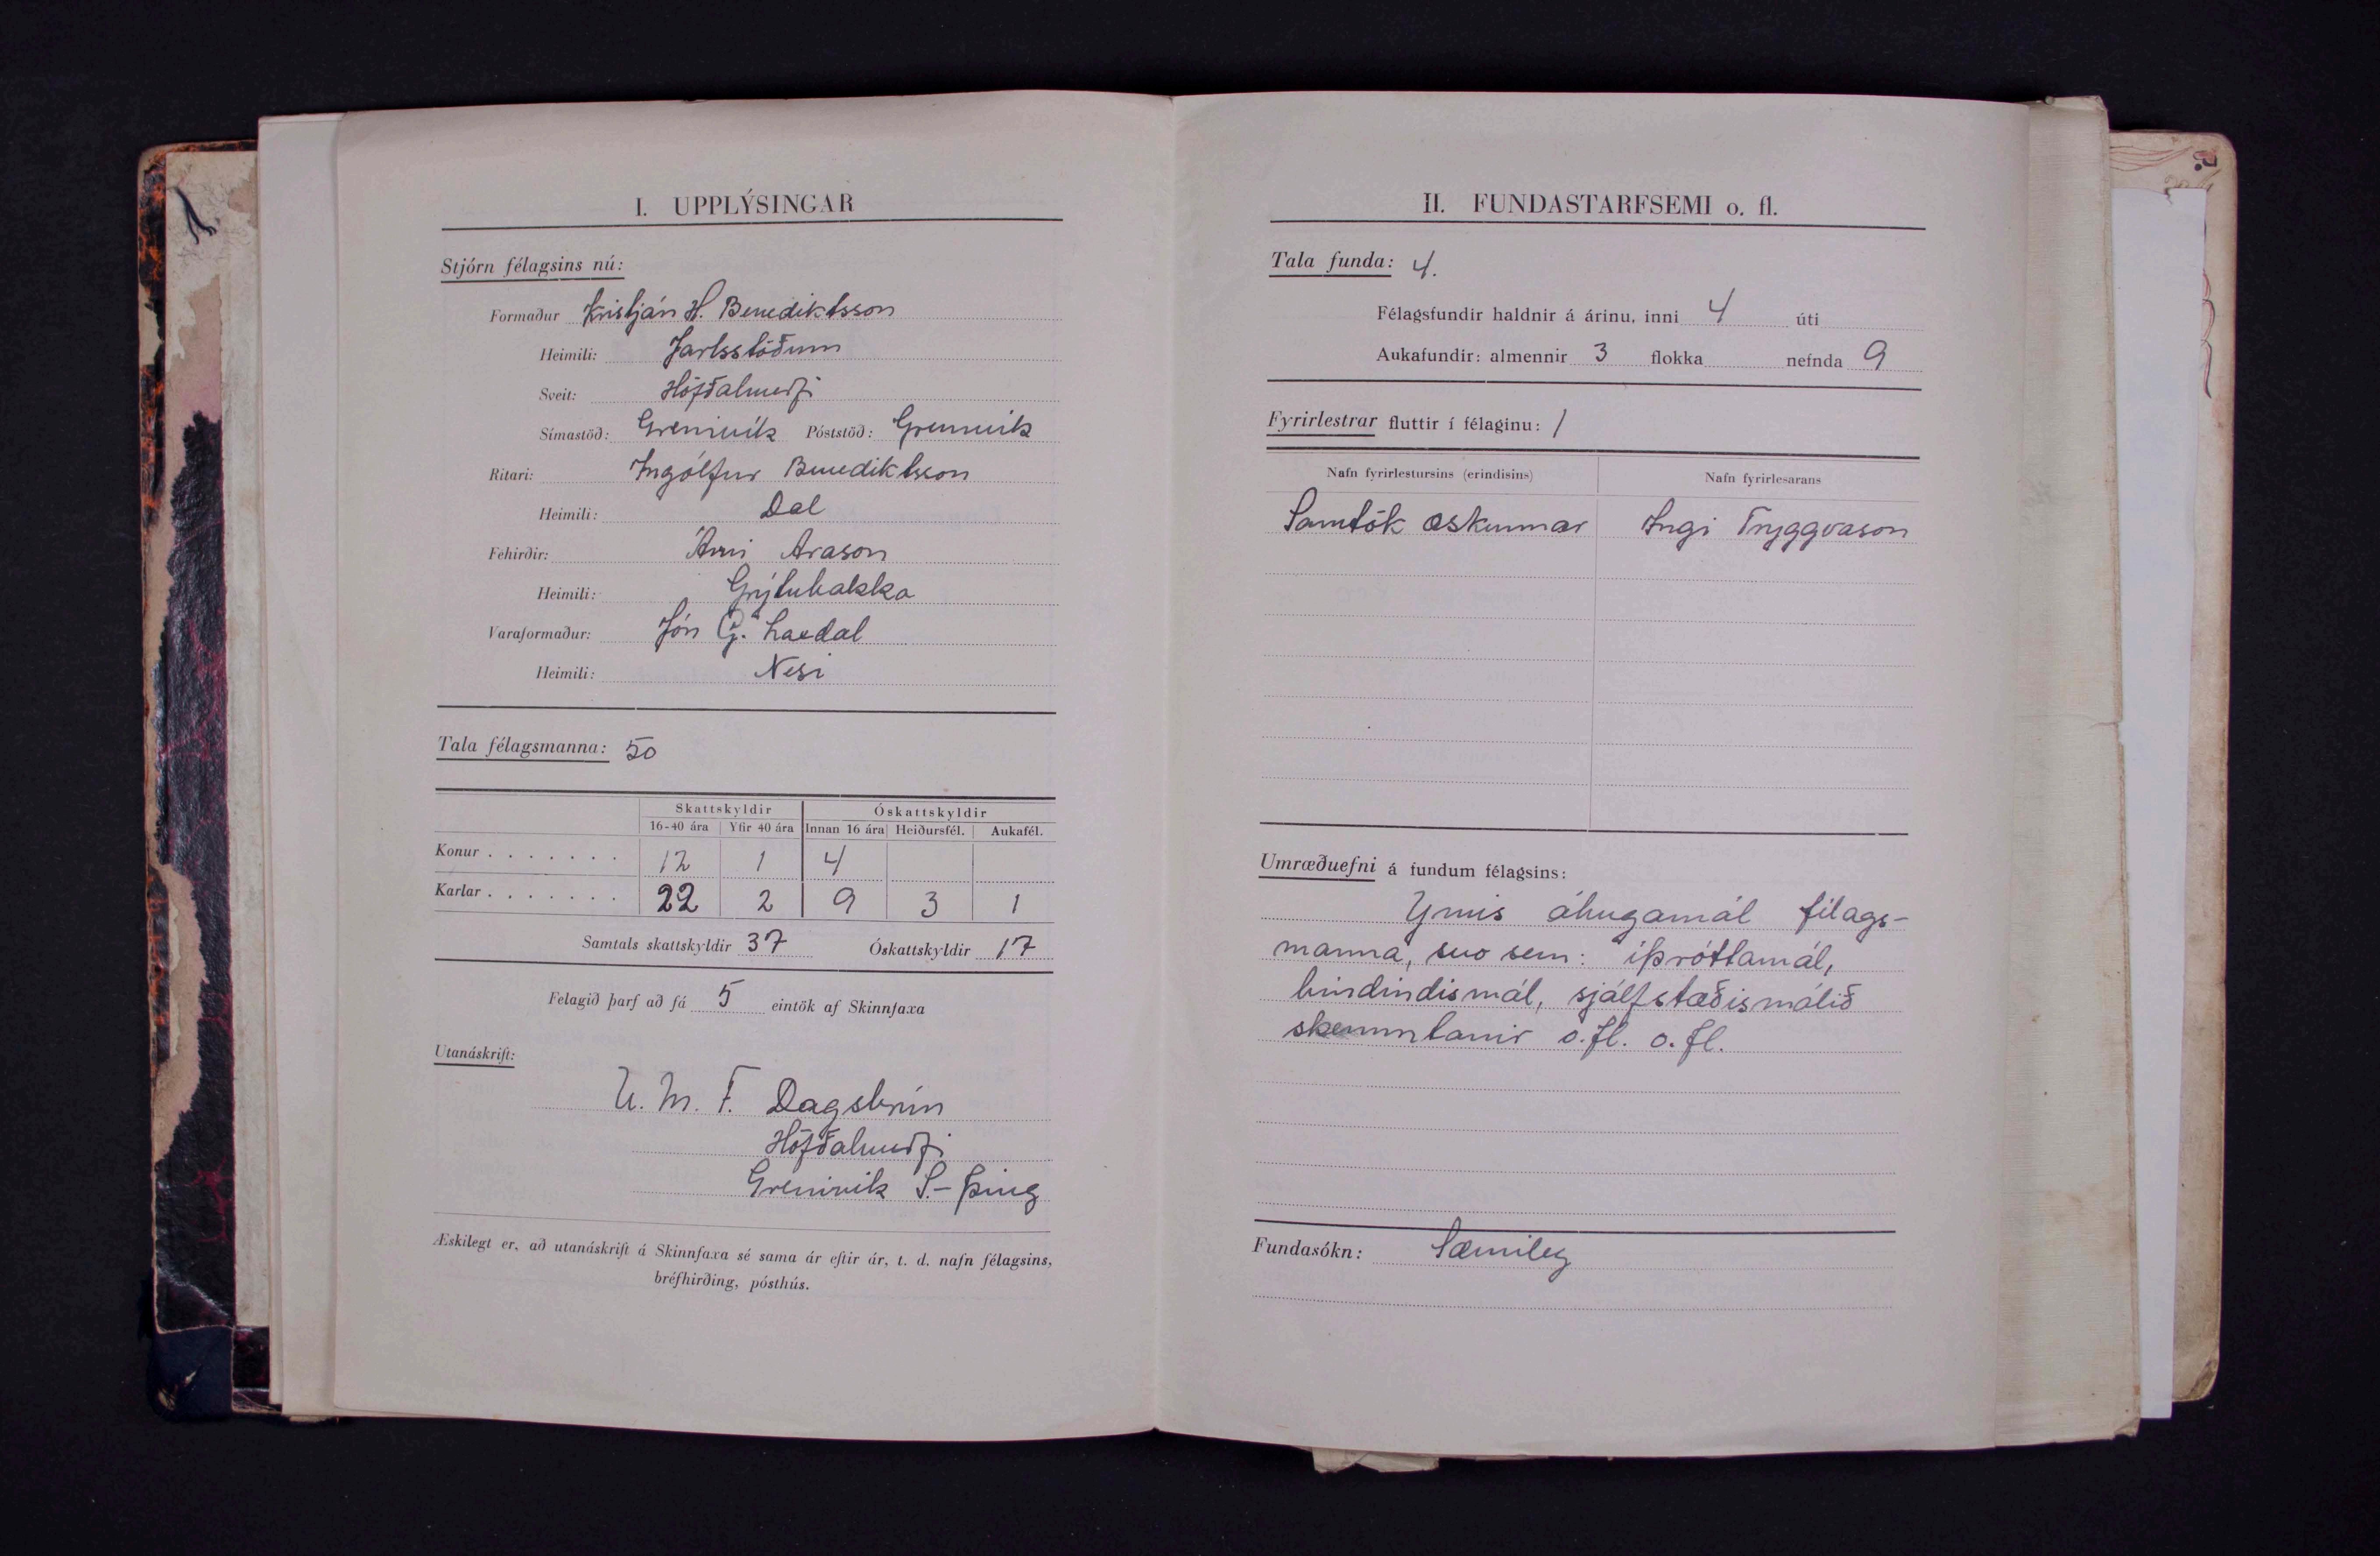 I. UPPLÝSINGAR
Stjórn félagsins nú:
Formaður Kristján H. Benediktsson
Heimili: Jarlsstöðum
Sveit: Höfðahverfi
Símastöð: Grenivík Póststöð: Grenivík
Ritari: Ingólfur Benediktsson
Heimili: Dal
Féhirðir: Árni Arason
Heimili: Grýtubakka
Varaformaður: Jón G. Laxdal
Heimili: Nesi
Tala félagsmanna: 50
Skattskyldir Óskattskyldir
16-40 ára Yfir 40 ára Innan 16 ára Heiðursfél. Aukafél.
Konur . . . . . . . 12 1 4
Karlar . . . . . . . 22 2 9 3 1
Samtals skattskyldir 37 Óskattskyldir 17
Félagið þarf að fá 5 eintök af Skinnfaxa
Utanáskrift:
U. M. F. Dagsbrún
Höfðahverfi
Grenivík S.-Þing
Æskilegt er, að utanáskrift á Skinnfaxa sé sama ár eftir ár, t. d. nafn félagsins,
bréfhirðing, pósthús.
II. FUNDASTARFSEMI o. fl.
Tala funda: 4.
Félagsfundir haldnir á árinu, inni 4 úti
Aukafundir: almennir 3 flokka nefnda 9
Fyrirlestrar fluttir í félaginu: 1
Nafn fyrirlestursins (erindisins) Nafn fyrirlesarans
Samtök æskunnar Ingi Tryggvason
Umræðuefni á fundum félagsins:
Ýmis áhugamál félags-
manna, svo sem: íþróttamál,
bindindismál, sjálfstæðismálið
skemmtanir o.fl. o.fl.
Fundasókn: Sæmileg